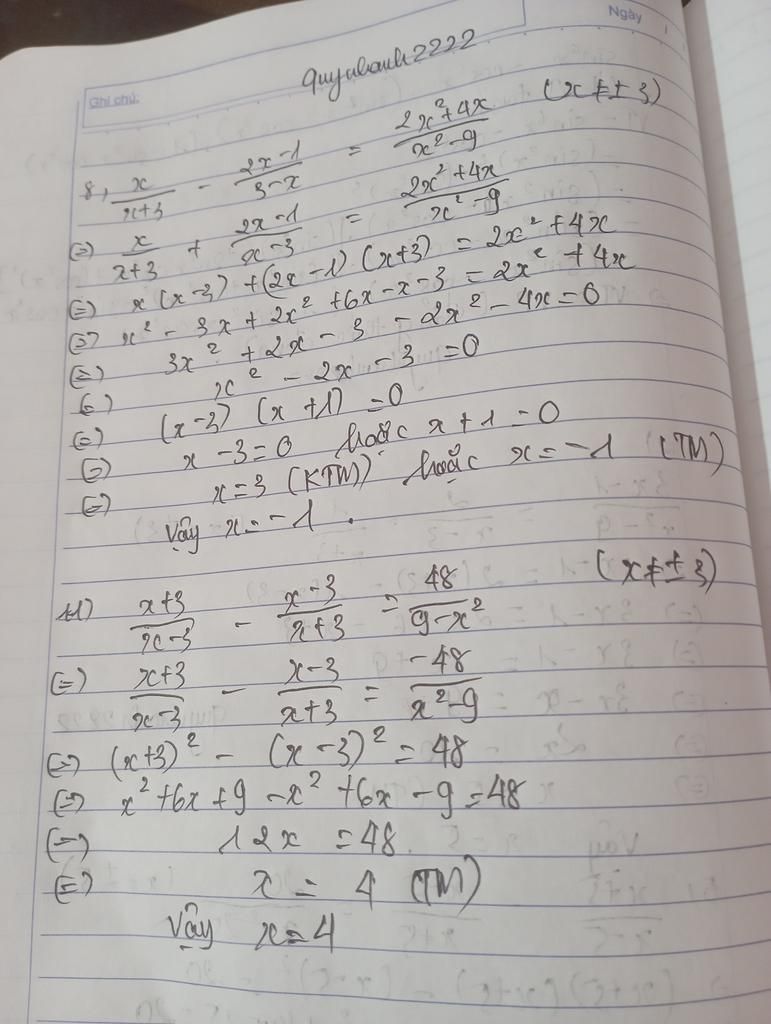 Ngày
Ghi chú:
quynhanh2222
8, x/(x+3) - (2x-1)/(3-x) = (2x²+4x)/(x²-9) (x≠±3)
(=) x/(x+3) + (2x-1)/(x-3) = (2x²+4x)/(x²-9)
(=) x(x-3) + (2x-1)(x+3) = 2x²+4x
(=) x² - 3x + 2x² + 6x - x - 3 = 2x² + 4x
(=) 3x² + 2x - 3 - 2x² - 4x = 0
(=) x² - 2x - 3 = 0
(=) (x-3) (x+1) = 0
(=) x-3=0 hoặc x+1=0
(=) x=3 (KTM) hoặc x=-1 (TM)
Vậy x=-1.
11) (x+3)/(x-3) - (x-3)/(x+3) = 48/(9-x²) (x≠±3)
(=) (x+3)/(x-3) - (x-3)/(x+3) = -48/(x²-9)
(=) (x+3)² - (x-3)² = 48
(=) x²+6x+9-x²+6x-9=48
(=) 12x = 48
(=) x = 4 (TM)
Vậy x=4